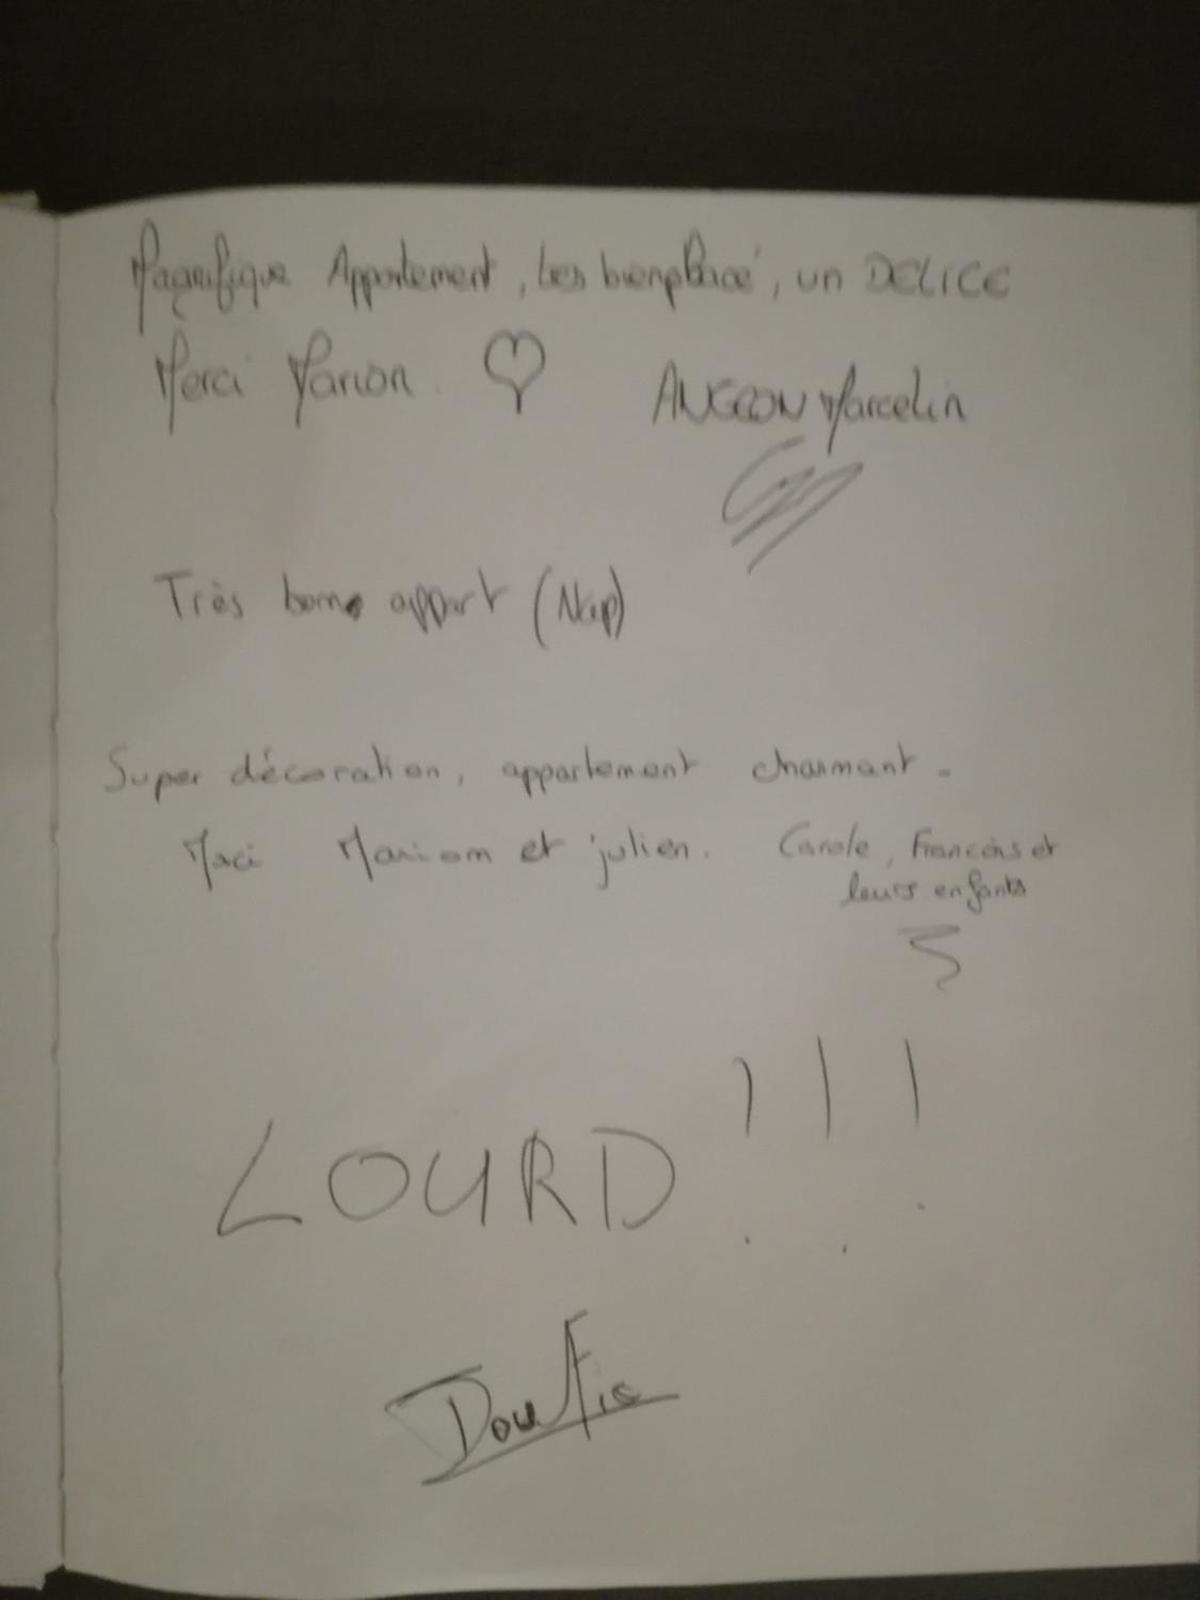 Magnifique Appartement, très bien placé, un DELICE
Merci Marion. ANGEON Marcelin
Très bonne appart (Nap)
Super décoration, appartement charmant.
Merci Marion et julien. Carole, François et
leurs enfants
LOURD !!!